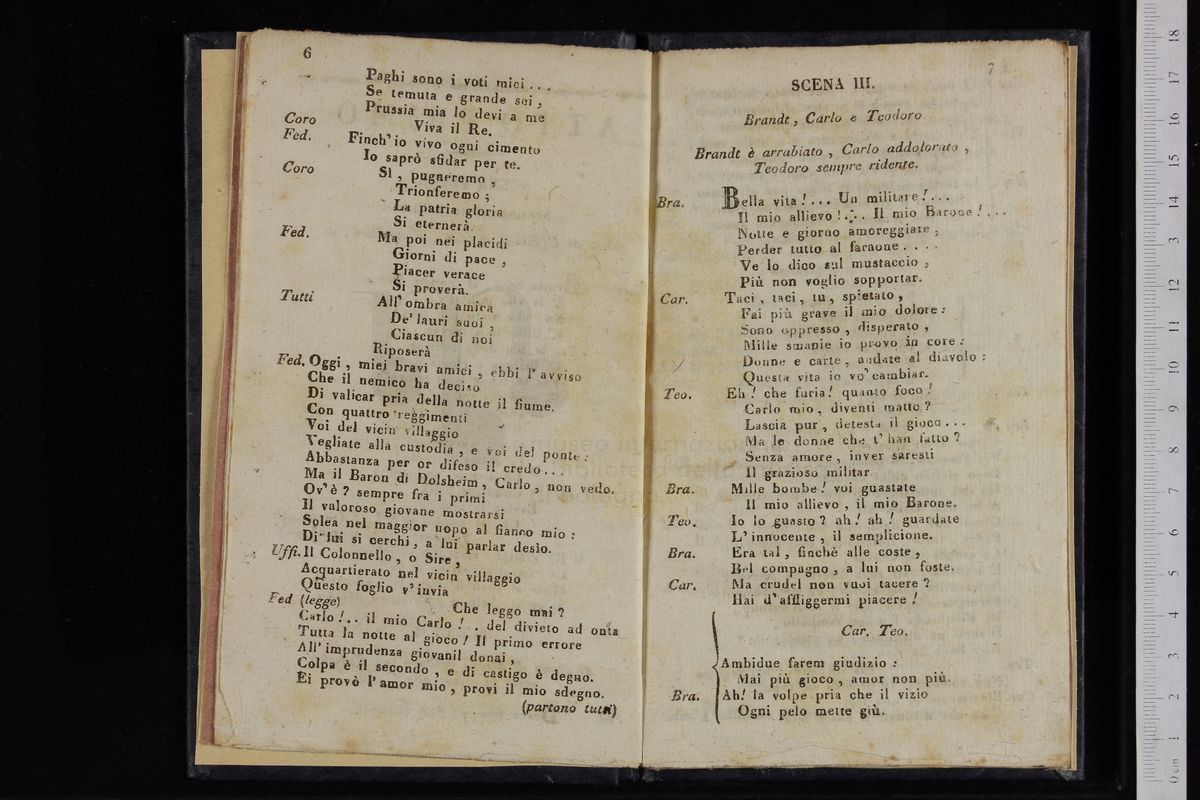 6
Paghi sono i voti miei...
Se temuta e grande sei,
Prussia mia lo devi a me
Coro Viva il Re.
Fed. Finch' io vivo ogni cimento
Io saprò sfidar per te.
Coro Sì, pugneremo,
Trionferemo;
La patria gloria
Si eternerà.
Fed. Ma poi nei placidi
Giorni di pace,
Piacer verace
Si proverà.
Tutti All' ombra amica
De' lauri suoi,
Ciascun di noi
Riposerà
Fed. Oggi, miei bravi amici, ebbi l' avviso
Che il nemico ha deciso
Di valicar pria della notte il fiume.
Con quattro reggimenti
Voi del vicin villaggio
Vegliate alla custodia, e voi del ponte:
Abbastanza per or difeso il credo...
Ma il Baron di Dolsheim, Carlo, non vedo.
Ov' è? sempre fra i primi
Il valoroso giovane mostrarsi
Solea nel maggior uopo al fianco mio:
Di lui si cerchi, a lui parlar desio.
Uffi. Il Colonnello, o Sire,
Acquartierato nel vicin villaggio
Questo foglio v' invia
Fed (legge) Che leggo mai?
Carlo!.. il mio Carlo!. del divieto ad onta
Tutta la notte al gioco! Il primo errore
All' imprudenza giovanil donai,
Colpa è il secondo, e di castigo è degno.
Ei provò l' amor mio, provi il mio sdegno.
(partono tutti)
7
SCENA III.
Brandt, Carlo e Teodoro
Brandt è arrabiato, Carlo addolorato,
Teodoro sempre ridente.
Bra. Bella vita!... Un militare!...
Il mio allievo!... Il mio Barone!...
Notte e giorno amoreggiare,
Perder tutto al faraone....
Ve lo dico sul mustaccio,
Più non voglio sopportar.
Car. Taci, taci, tu, spietato,
Fai più grave il mio dolore:
Sono oppresso, disperato,
Mille smanie io provo in core:
Donne e carte, andate al diavolo:
Questa vita io vo' cambiar.
Teo. Eh! che furia! quanto foco!
Carlo mio, diventi matto?
Lascia pur, detesta il gioco...
Ma le donne che t' han fatto?
Senza amore, inver saresti
Il grazioso militar
Bra. Mille bombe! voi guastate
Il mio allievo, il mio Barone.
Teo. Io lo guasto? ah! ah! guardate
L' innocente, il semplicione.
Bra. Era tal, finchè alle coste,
Bel compagno, a lui non foste.
Car. Ma crudel non vuoi tacere?
Hai d' affliggermi piacere!
Car. Teo.
Ambidue farem giudizio:
Mai più gioco, amor non più.
Bra. Ah! la volpe pria che il vizio
Ogni pelo mette giù.
0 cm 1 2 3 4 5 6 7 8 9 10 11 12 13 14 15 16 17 18